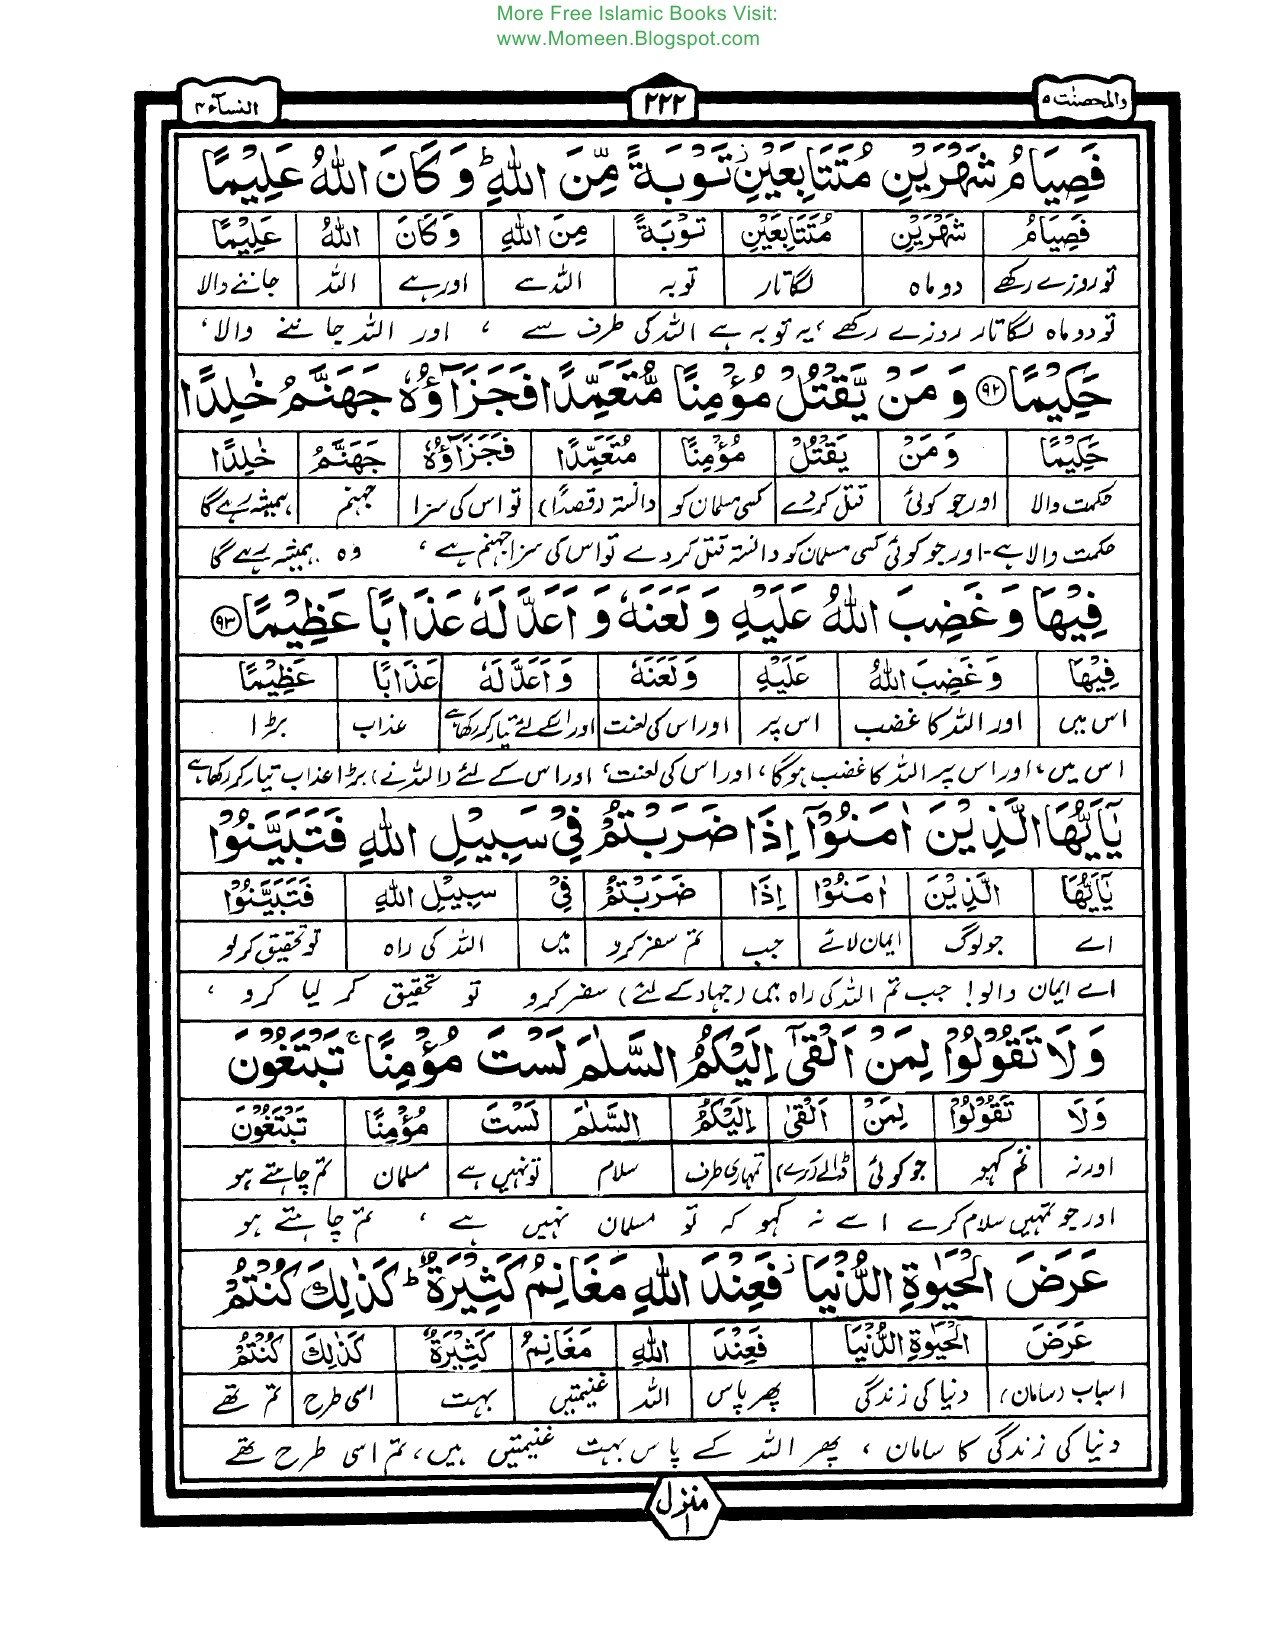 More Free Islamic Books Visit:
www.Momeen.Blogspot.com
والمحصنٰت ۵
۲۲۲
النسآء ۴
فَصِيَامُ شَهْرَيْنِ مُتَتَابِعَيْنِ ز تَوْبَةً مِّنَ اللّٰهِ ط وَ كَانَ اللّٰهُ عَلِيْمًا
فَصِيَامُ شَهْرَيْنِ مُتَتَابِعَيْنِ تَوْبَةً مِنَ اللّٰهِ وَ كَانَ اللّٰهُ عَلِيْمًا
تو روزے رکھے دو ماہ لگاتار توبہ اللہ سے اور ہے اللہ جاننے والا
تو دو ماہ لگاتار روزے رکھے، یہ توبہ ہے اللہ کی طرف سے ، اور اللہ جاننے والا،
حَكِيْمًا ۹۲ وَ مَنْ يَّقْتُلْ مُؤْمِنًا مُّتَعَمِّدًا فَجَزَآؤُهٗ جَهَنَّمُ خٰلِدًا
حَكِيْمًا وَ مَنْ يَقْتُلْ مُؤْمِنًا مُتَعَمِّدًا فَجَزَآؤُهٗ جَهَنَّمُ خٰلِدًا
حکمت والا اور جو کوئی قتل کردے کسی مسلمان کو دانستہ (قصدًا) تو اس کی سزا جہنم ہمیشہ رہے گا
حکمت والا ہے۔ اور جو کوئی کسی مسلمان کو دانستہ قتل کر دے تو اس کی سزا جہنم ہے ، وہ ہمیشہ رہے گا
فِيْهَا وَ غَضِبَ اللّٰهُ عَلَيْهِ وَ لَعَنَهٗ وَ اَعَدَّ لَهٗ عَذَابًا عَظِيْمًا ۹۳
فِيْهَا وَ غَضِبَ اللّٰهُ عَلَيْهِ وَ لَعَنَهٗ وَ اَعَدَّ لَهٗ عَذَابًا عَظِيْمًا
اس میں اور اللہ کا غضب اس پر اور اس کی لعنت اور اسکے لئے تیار کر رکھا ہے عذاب بڑا
اس میں، اور اس پر اللہ کا غضب ہوگا، اور اس کی لعنت، اور اس کے لئے (اللہ نے) بڑا عذاب تیار کر رکھا ہے
يٰۤاَيُّهَا الَّذِيْنَ اٰمَنُوْۤا اِذَا ضَرَبْتُمْ فِيْ سَبِيْلِ اللّٰهِ فَتَبَيَّنُوْا
يٰۤاَيُّهَا الَّذِيْنَ اٰمَنُوْۤا اِذَا ضَرَبْتُمْ فِيْ سَبِيْلِ اللّٰهِ فَتَبَيَّنُوْا
اے جو لوگ ایمان لائے جب تم سفر کرو میں اللہ کی راہ تو تحقیق کر لو
اے ایمان والو! جب تم اللہ کی راہ میں (جہاد کے لئے) سفر کرو تو تحقیق کر لیا کرو ،
وَ لَا تَقُوْلُوْا لِمَنْ اَلْقٰۤى اِلَيْكُمُ السَّلٰمَ لَسْتَ مُؤْمِنًا ج تَبْتَغُوْنَ
وَ لَا تَقُوْلُوْا لِمَنْ اَلْقٰى اِلَيْكُمُ السَّلٰمَ لَسْتَ مُؤْمِنًا تَبْتَغُوْنَ
اور نہ تم کہو جو کوئی ڈالے (کرے) تمہاری طرف سلام تو نہیں ہے مسلمان تم چاہتے ہو
اور جو تمہیں سلام کرے اسے نہ کہو کہ تو مسلمان نہیں ہے ، تم چاہتے ہو
عَرَضَ الْحَيٰوةِ الدُّنْيَا ز فَعِنْدَ اللّٰهِ مَغَانِمُ كَثِيْرَةٌ ط كَذٰلِكَ كُنْتُمْ
عَرَضَ الْحَيٰوةِ الدُّنْيَا فَعِنْدَ اللّٰهِ مَغَانِمُ كَثِيْرَةٌ كَذٰلِكَ كُنْتُمْ
اسباب (سامان) دنیا کی زندگی پھر پاس اللہ غنیمتیں بہت اسی طرح تم تھے
دنیا کی زندگی کا سامان ، پھر اللہ کے پاس بہت غنیمتیں ہیں، تم اسی طرح تھے
منزل ۱